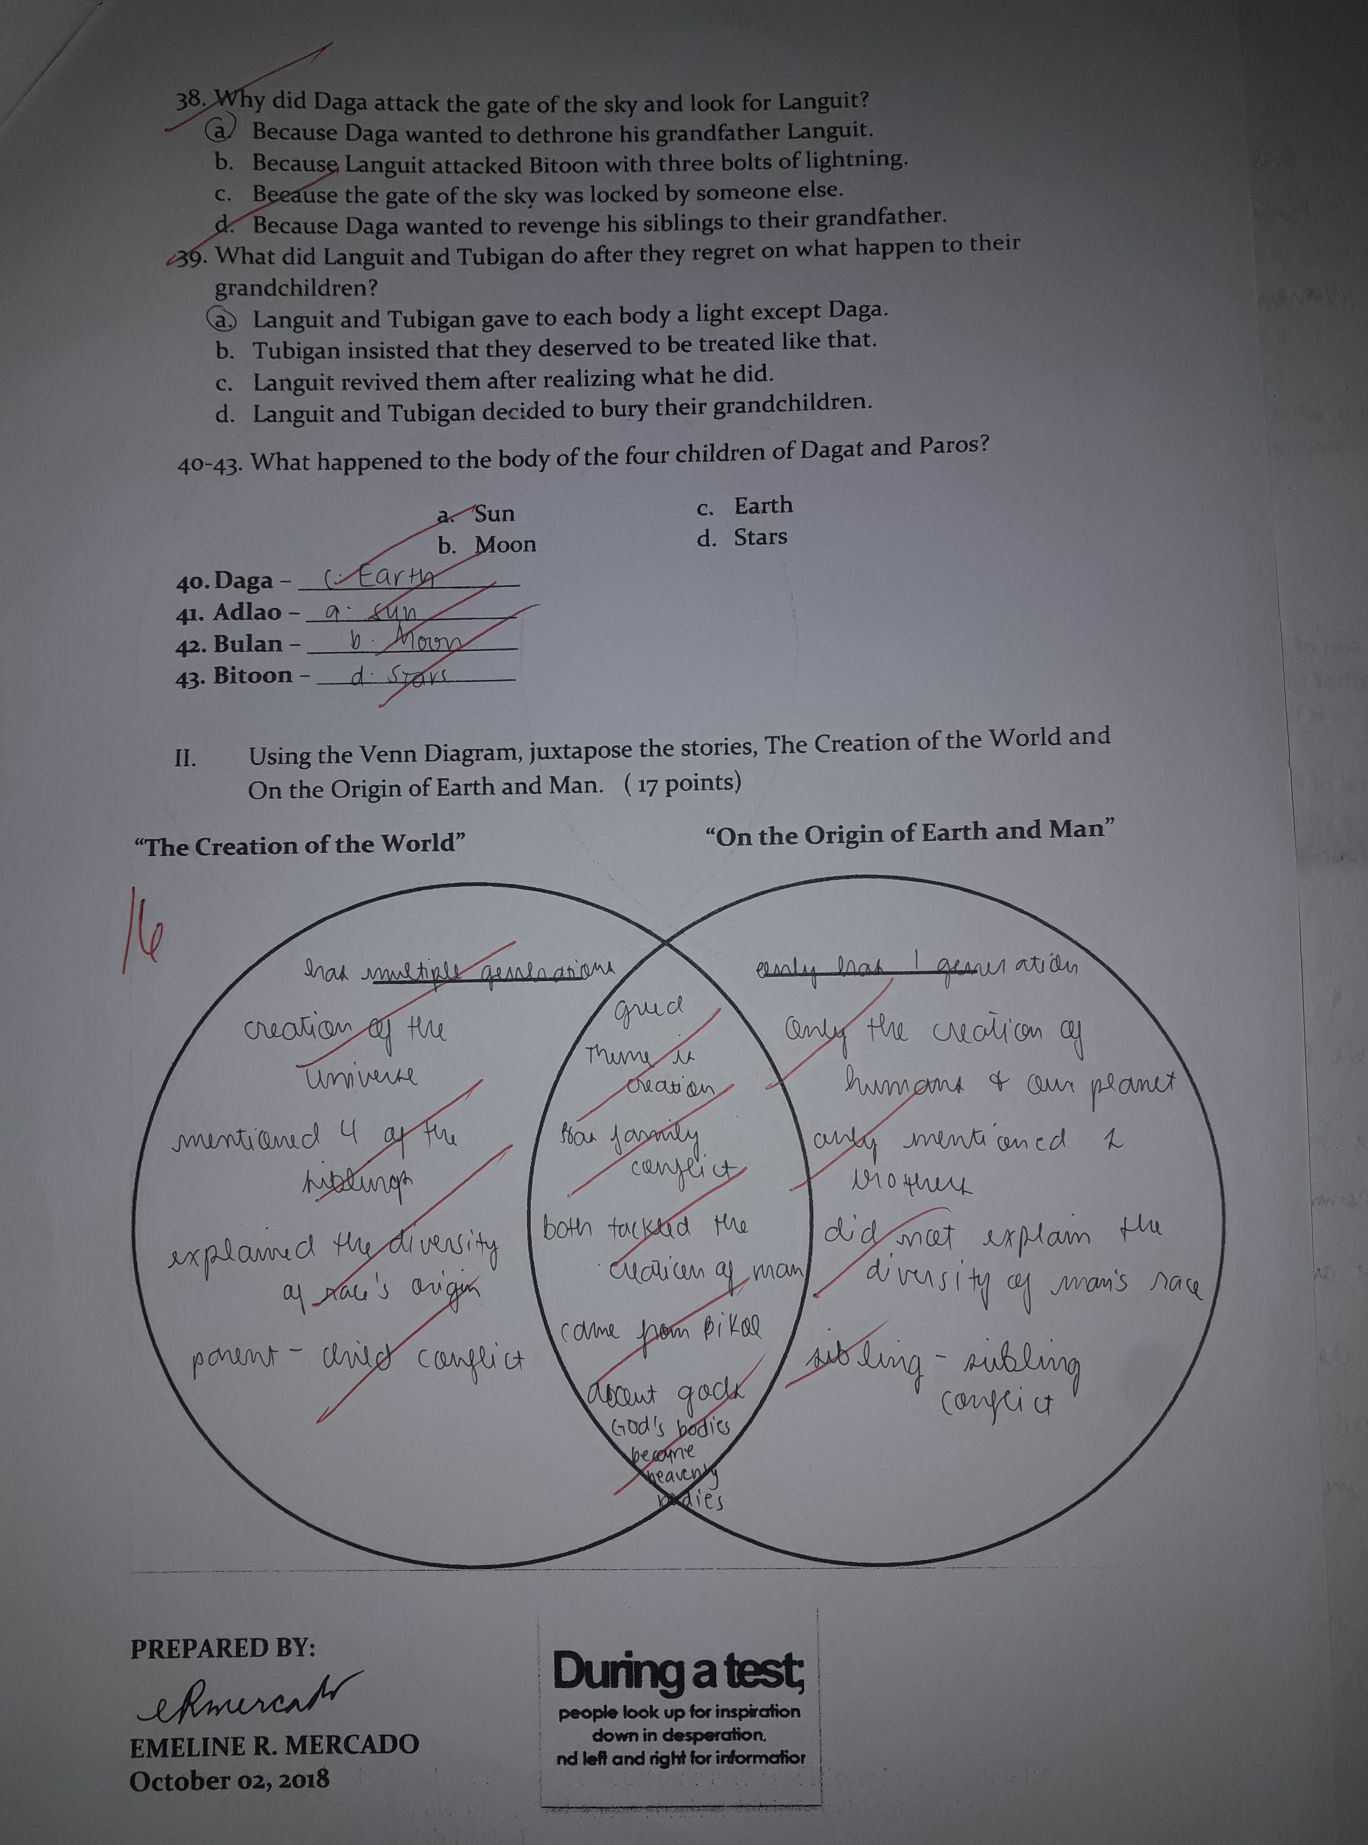 38. Why did Daga attack the gate of the sky and look for Languit?
a. Because Daga wanted to dethrone his grandfather Languit.
b. Because Languit attacked Bitoon with three bolts of lightning.
c. Because the gate of the sky was locked by someone else.
d. Because Daga wanted to revenge his siblings to their grandfather.
39. What did Languit and Tubigan do after they regret on what happen to their
grandchildren?
a. Languit and Tubigan gave to each body a light except Daga.
b. Tubigan insisted that they deserved to be treated like that.
c. Languit revived them after realizing what he did.
d. Languit and Tubigan decided to bury their grandchildren.
40-43. What happened to the body of the four children of Dagat and Paros?
a. Sun c. Earth
b. Moon d. Stars
40. Daga - c. Earth
41. Adlao - a. sun
42. Bulan - b. Moon
43. Bitoon - d. Stars
II. Using the Venn Diagram, juxtapose the stories, The Creation of the World and
On the Origin of Earth and Man. ( 17 points)
"The Creation of the World" "On the Origin of Earth and Man"
16
has multiple generations
creation of the
universe
mentioned 4 of the
siblings
explained the diversity
of race's origin
parent - child conflict
greed
Theme is
creation
Has family
conflict
both tackled the
creation of man
came from Bikol
gods
God's bodies
became
heavenly
bodies
only has 1 generation
only the creation of
humans & our planet
only mentioned 2
brothers
did not explain the
diversity of man's race
sibling - sibling
conflict
PREPARED BY:
eRmercado
EMELINE R. MERCADO
October 02, 2018
During a test;
people look up for inspiration
down in desperation,
nd left and right for informatior